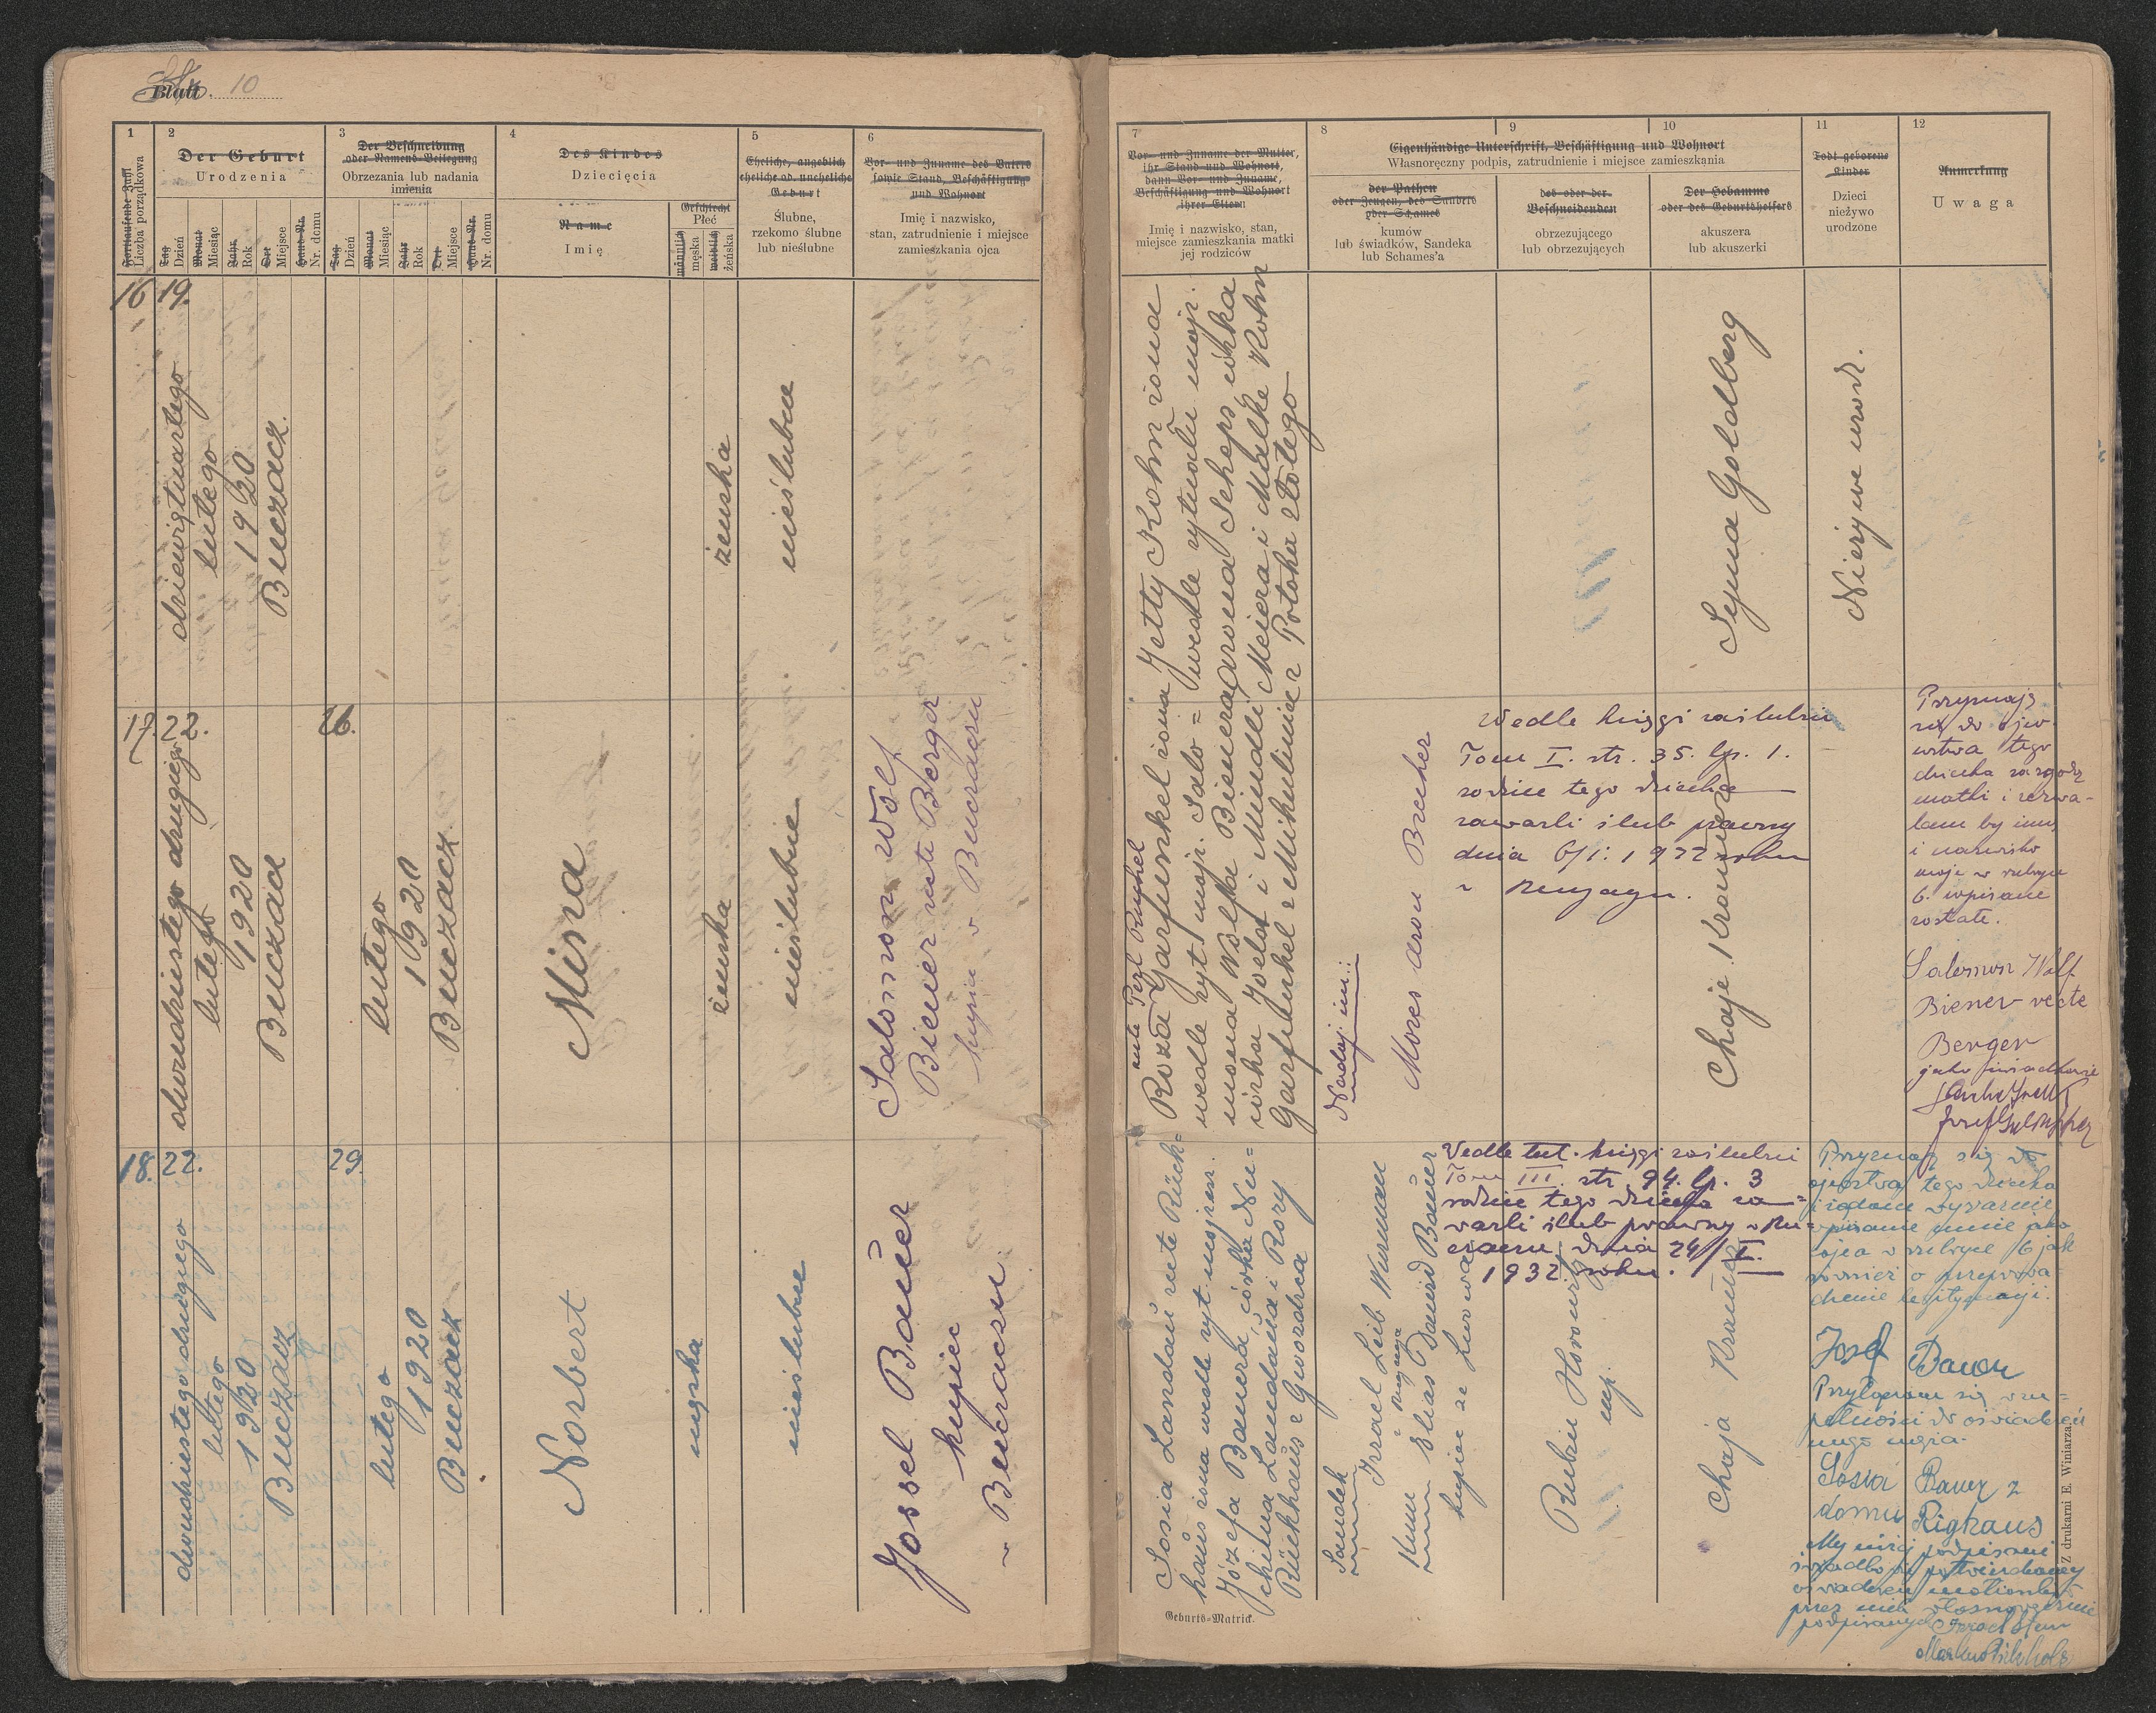 Blatt 10
1
2
3
4
5
6
Fortlaufende Zahl
Liczba porządkowa
Der Geburt
Urodzenia
Der Beschneidung
oder Namens-Beilegung
Obrzezania lub nadania
imienia
Des Kindes
Dziecięcia
Eheliche, angeblich
eheliche od. uneheliche
Geburt
Ślubne,
rzekomo ślubne
lub nieślubne
Vor- und Zuname des Vaters
sowie Stand, Beschäftigung
und Wohnort
Imię i nazwisko,
stan, zatrudnienie i miejsce
zamieszkania ojca
Tag
Dzień
Monat
Miesiąc
Jahr
Rok
Ort
Miejsce
Haus-Nr.
Nr. domu
Tag
Dzień
Monat
Miesiąc
Jahr
Rok
Ort
Miejsce
Haus-Nr.
Nr. domu
Name
Imię
Geschlecht
Płeć
männlich
męska
weiblich
żeńska
16
19.
dziewiętnastego
lutego
1920
Buczacz
żeńska
nieślubne
17.
22.
dwudziestego drugiego
lutego
1920
Buczacz
26.
lutego
1920
Buczacz
Mina
żeńska
nieślubne
Salomon Wolf
Biener recte Berger
kupiec w Buczaczu
18.
22.
dwudziestego drugiego
lutego
1920
Buczacz
29.
lutego
1920
Buczacz
Norbert
męska
nieślubne
Jossel Bauer
kupiec
w Buczaczu
7
8
9
10
11
12
Vor- und Zuname der Mutter,
ihr Stand und Wohnort,
dann Vor- und Zuname,
Beschäftigung und Wohnort
ihrer Eltern
Imię i nazwisko, stan,
miejsce zamieszkania matki
jej rodziców
Eigenhändige Unterschrift, Beschäftigung und Wohnort
Własnoręczny podpis, zatrudnienie i miejsce zamieszkania
der Pathen
oder Zeugen, des Sanders
oder Schames
kumów
lub świadków, Sandeka
lub Schames'a
des oder der
Beschneidenden
obrzezującego
lub obrzezujących
Der Hebamme
oder des Geburtshelfers
akuszera
lub akuszerki
Todt geborene
Kinder
Dzieci
nieżywo
urodzone
Anmerkung
Uwaga
Jetty Kohn żona
wedle rytuału mojż.
Arona Scheps, córka
Meiera i Małke Kohn
z Potoka złotego
Syma Goldberg
Nieżywe urodz.
Roza Garfunkel żona
wedle ryt. mojż. Salo=
mona Wolfa Bienera,
córka Joela i Mindli
Garfunkel z Mikuliniec
Nadaj. im.:
Mozes Aron Brecher
Wedle księgi zaślubin
Tom I. str. 35. lp. 1.
rodzice tego dziecka
zawarli ślub prawny
dnia 6/1. 1922 roku
w
Chaje Krauner
Przyznaję
się do ojco-
wstwa tego
dziecka za zgodą
matki i zezwa-
lam by imię
i nazwisko
moje w rubryce
6. wpisane
zostało.
Salomon Wolf
Biener recte
Berger
jako świadkowie
Sosia Landau recte Rück=
haus żona wedle ryt. mojżesz.
Józefa Bauera, córka Nu=
chima Landaua i Rozy
Rückhaus z Gwozdźca
Sandek
Izrael Leib Wurman
Kum Elias Dawid Bauer
kupiec ze Lwowa
Wedle tut. księgi zaślubin
Tom III. str. 94. lp. 3
rodzice tego dziecka za=
warli ślub prawny w Bu=
czaczu dnia 24/I.
1932. roku.
Rubin Horowitz
mp.
Chaja Krauner
Przyznaję się do
ojcostwa tego dziecka
i żądam wyraźnie
wpisanie mnie jako
ojca w rubryce 6 jak
również o przeprowa-
dzenie legitymacji.
Josef Bauer
Przyłączam się w zu=
pełności do oświadczeń
mego męża.
Sosia Bauer z
domu Righaus
My niżej podpisani
świadkowie potwierdzamy
podpisanych Izrael Stern
Geburts-Matrick.
Z drukarni E. Winiarza